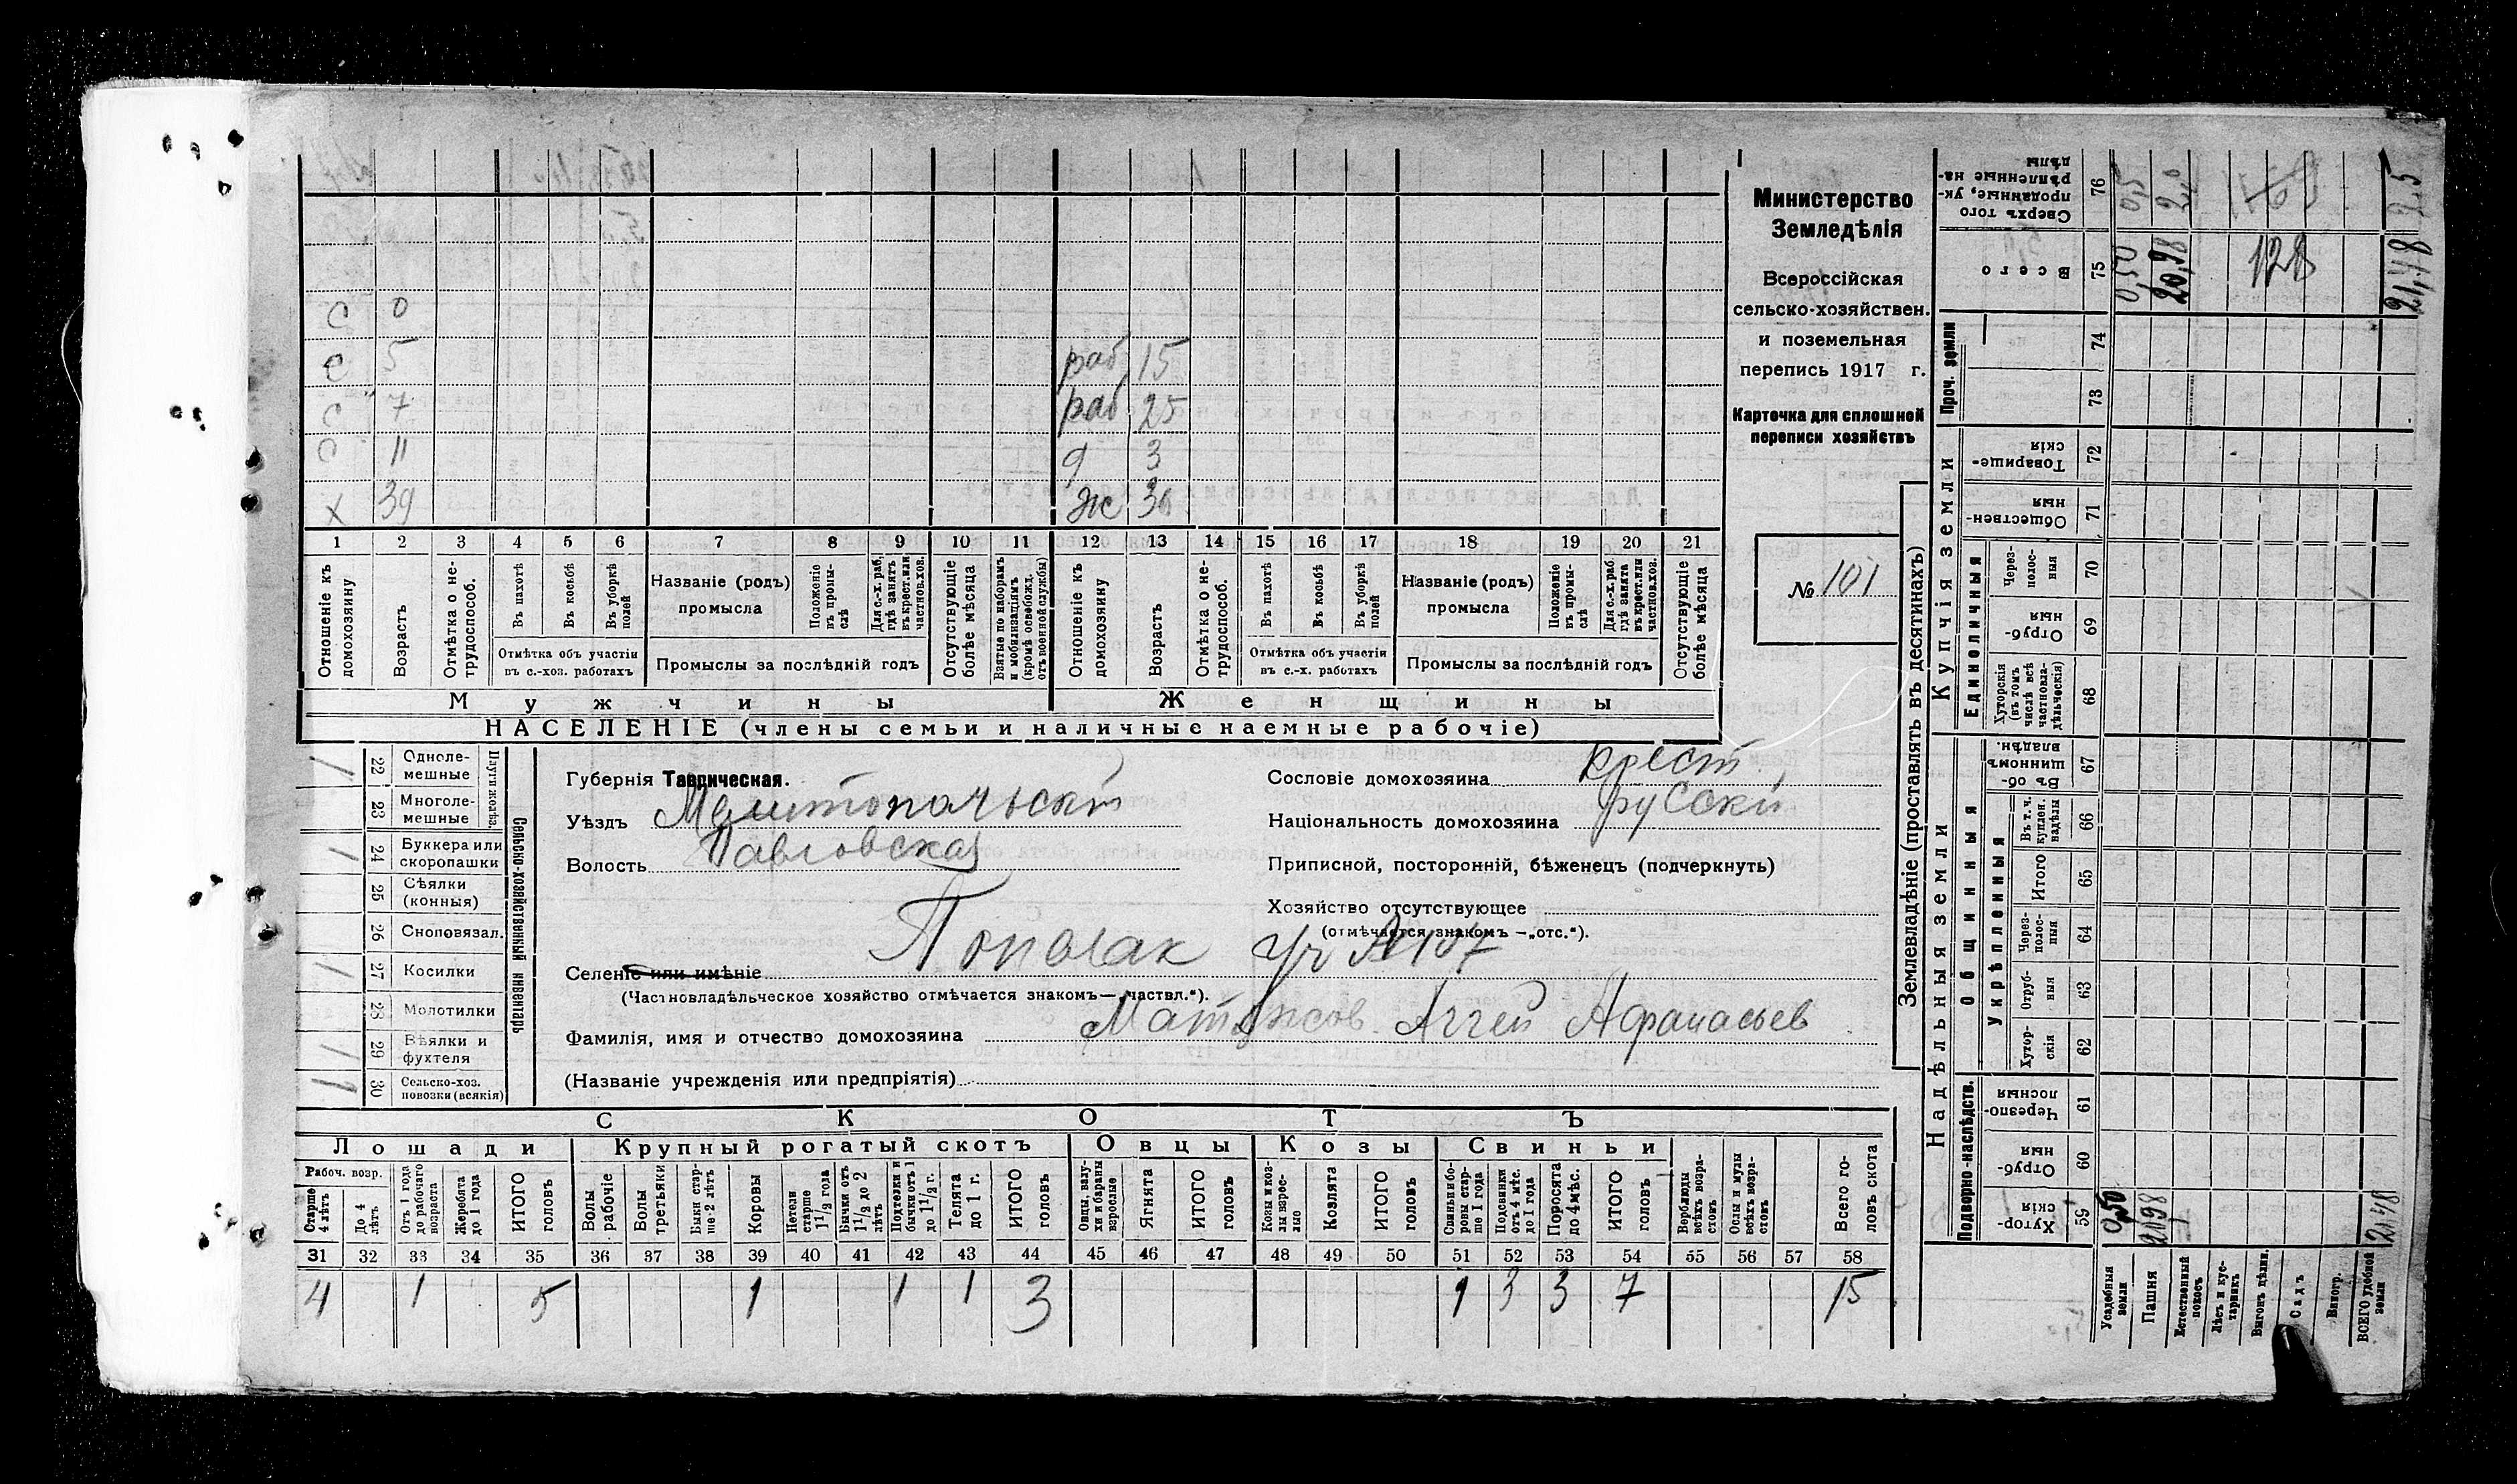 с 0
с 5 раб 15
с 7 раб 25
с 11 д 3
х 39 ж
1 2 3 4 5 6 7 8 9 10 11 12 13 14 15 16 17 18 19 20 21
Отношеніе къ домохозяину
Возрастъ
Отмѣтка о не-трудоспособ.
Въ пахотѣ
Въ косьбѣ
Въ уборкѣ полей
Отмѣтка объ участіи въ с.-хоз. работахъ
Названіе (родъ) промысла
Положеніе въ промы-слѣ
Для с.-х. раб. гдѣ занятъ въ крест. или частнов. хоз.
Промыслы за послѣдній годъ
Отсутствующіе болѣе мѣсяца
Взятые по наборамъ и мобилизаціямъ (кромѣ освобожд. отъ военной службы)
Отношеніе къ домохозяину
Возрастъ
Отмѣтка о не-трудоспособ.
Въ пахотѣ
Въ косьбѣ
Въ уборкѣ полей
Отмѣтка объ участіи въ с.-х. работахъ
Названіе (родъ) промысла
Положеніе въ промы-слѣ
Для с.-х. раб. гдѣ занята въ крест. или частнов. хоз.
Промыслы за послѣдній годъ
Отсутствующіе болѣе мѣсяца
Мужчины Женщины
НАСЕЛЕНІЕ (члены семьи и наличные наемные рабочіе)
Министерство
Земледѣлія
Всероссійская
сельско-хозяйствен.
и поземельная
перепись 1917 г.
Карточка для сплошной
переписи хозяйствъ
№ 101
Сельско-хозяйственный инвентарь
Плуги желѣз.
22 Одноле-мешные 1
23 Многоле-мешные
24 Буккера или скоропашки 1
25 Сѣялки (конныя)
26 Сноповязал.
27 Косилки 1
28 Молотилки
29 Вѣялки и фухтеля 1
30 Сельско-хоз. повозки (всякія) 11
Губернія Таврическая.
Уѣздъ Мелитопольскій
Волость Павловская
Селеніе или имѣніе Уч № 107
(Частновладѣльческое хозяйство отмѣчается знакомъ—„частвл.“).
Фамилія, имя и отчество домохозяина Аггей Афанасьев
(Названіе учрежденія или предпріятія)
Сословіе домохозяина крест.
Національность домохозяина русскій
Приписной, посторонній, бѣженецъ (подчеркнуть)
Хозяйство отсутствующее
(отмѣчается знакомъ —„отс.“).
СКОТЪ
Лошади Крупный рогатый скотъ Овцы Козы Свиньи
Рабоч. возр.
Старше 4 лѣтъ
До 4 лѣтъ
Отъ 1 года до рабочаго возраста
Жеребята до 1 года
ИТОГО головъ
Волы рабочіе
Волы третьяки
Быки стар-ше 2 лѣтъ
Коровы
Нетели старше 1½ года
Бычки отъ 1½ до 2 лѣтъ
Подтелки и бычки отъ 1 до 1½ г.
Телята до 1 г.
ИТОГО головъ
Овцы, валу-хи и бараны взрослые
Ягнята
ИТОГО головъ
Козы и коз-лы взрос-лые
Козлята
ИТОГО головъ
Свиньи и бо-ровы стар-ше 1 года
Подсвинки отъ 4 мѣс. до 1 года
Поросята до 4 мѣс.
ИТОГО головъ
Верблюды всѣхъ возра-стовъ
Ослы и мулы всѣхъ возра-стовъ
Всего го-ловъ скота
31 32 33 34 35 36 37 38 39 40 41 42 43 44 45 46 47 48 49 50 51 52 53 54 55 56 57 58
4 1 5 1 1 1 3 1 3 3 7 15
Землевладѣніе (проставлять въ десятинахъ)
Надѣльныя земли
Купчія земли
Проч. земли
Подворно-наслѣдств.
Общинныя
Укрѣпленныя
Единоличныя
Сверхъ того проданные, ук-рѣпленные на-дѣлы 76 0,5 2,0 2,5
Всего 75 0,50 20,98 128 21,48
74
73
Товарище-скія 72
Обществен-ныя 71
Через-полос-ныя 70
Отруб-ныя 69
Хуторскія (въ томъ числѣ всѣ частновла-дѣльческія) 68
Въ об-щинномъ владѣн. 67
Въ т. ч. куплен. надѣлы 66
Итого 65
Через-полос-ныя 64
Отруб-ныя 63
Хутор-скія 62
Черезпо-лосныя 61
Отруб-ныя 60
Хутор-скія 59 0,50 20,98 21,48
Усадебныя земли
Пашня
Естественный покосъ
Лѣсъ и кус-тарникъ
Выгонъ цѣлин.
Садъ
Виногр.
ВСЕГО удобной земли